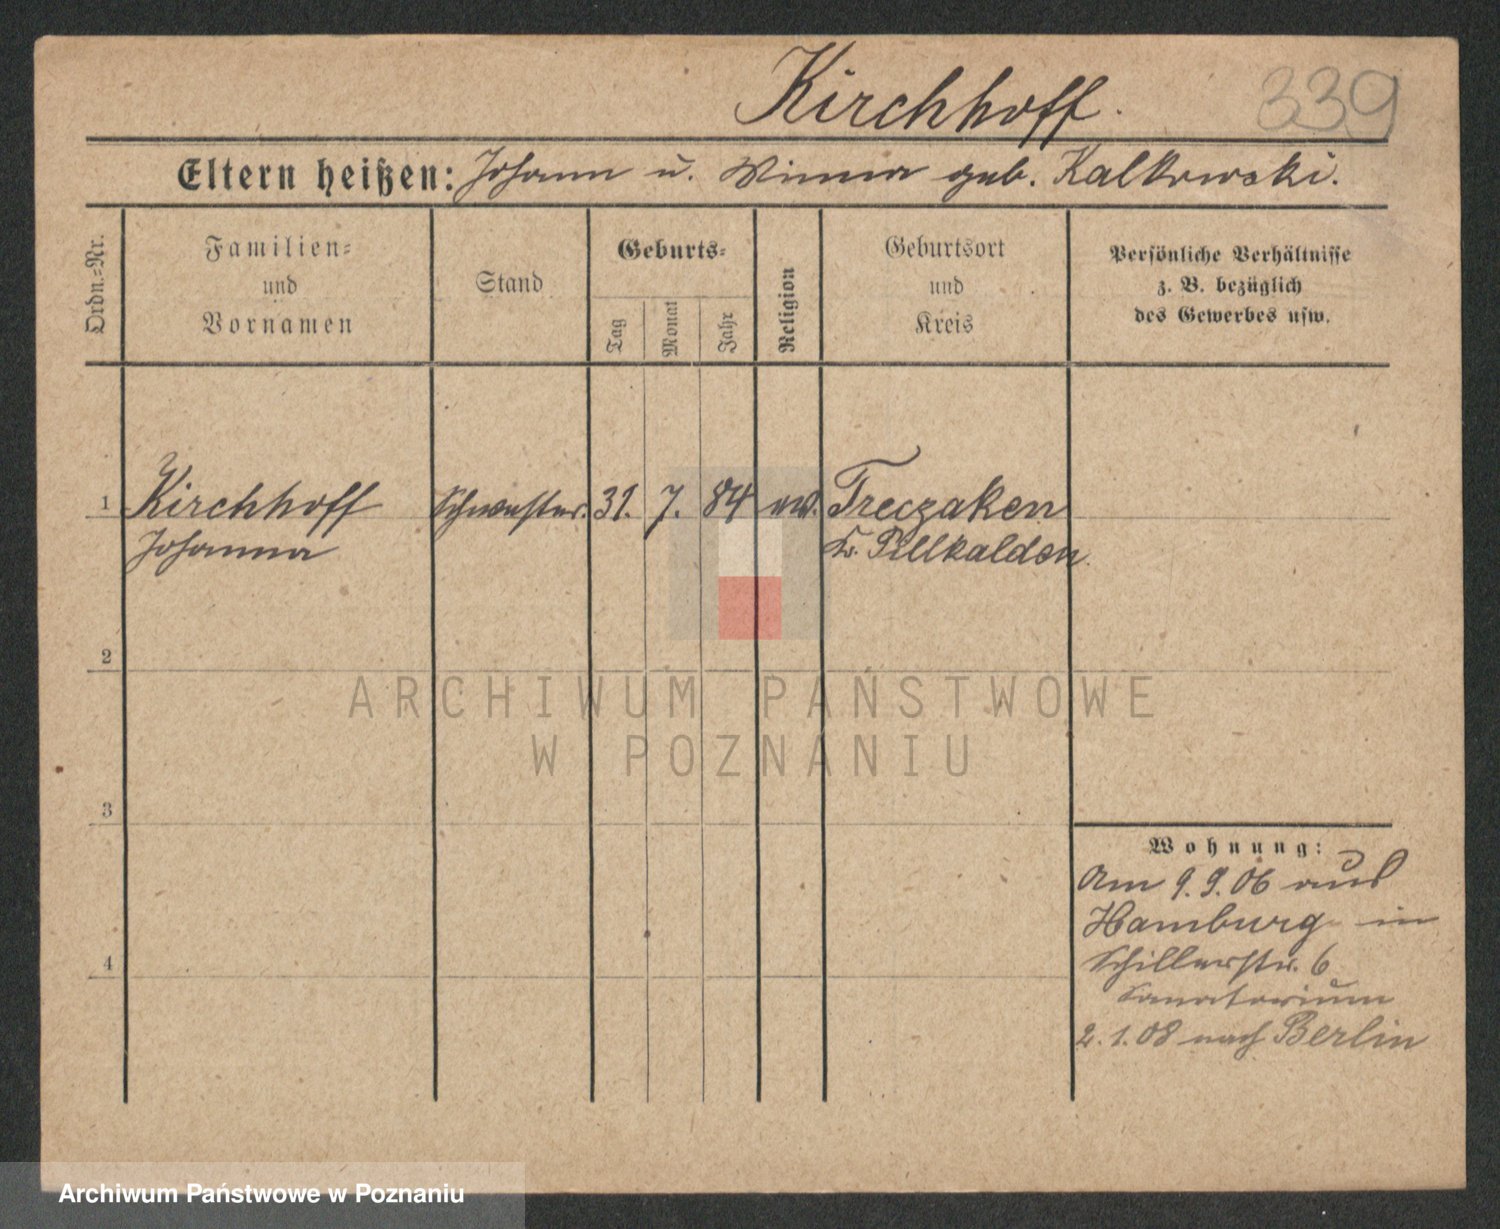 Kirchhoff.
339
Eltern heißen: Johann u. Minna geb. Kalkowski.
Ordn.=Nr.
Familien=
und
Vornamen
Stand
Geburts=
Tag
Monat
Jahr
Religion
Geburtsort
und
Kreis
Persönliche Verhältnisse
z. B. bezüglich
des Gewerbes usw.
1 Kirchhoff Schwester. 31. 7. 84 ev. Treczaken
Johanna Kr. Pillkalden.
2
ARCHIWUM PAŃSTWOWE
W POZNANIU
3
Wohnung:
Am 9.9.06 aus
Hamburg in
4
Schillerstr. 6
Sanatorium
2.1.08 nach Berlin
Archiwum Państwowe w Poznaniu